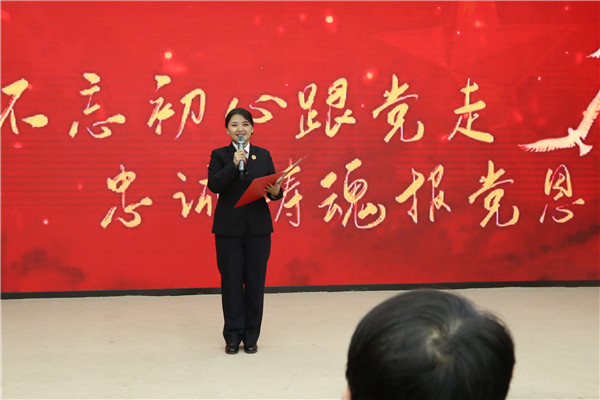 不忘初心跟党走
忠诚铸魂报党恩